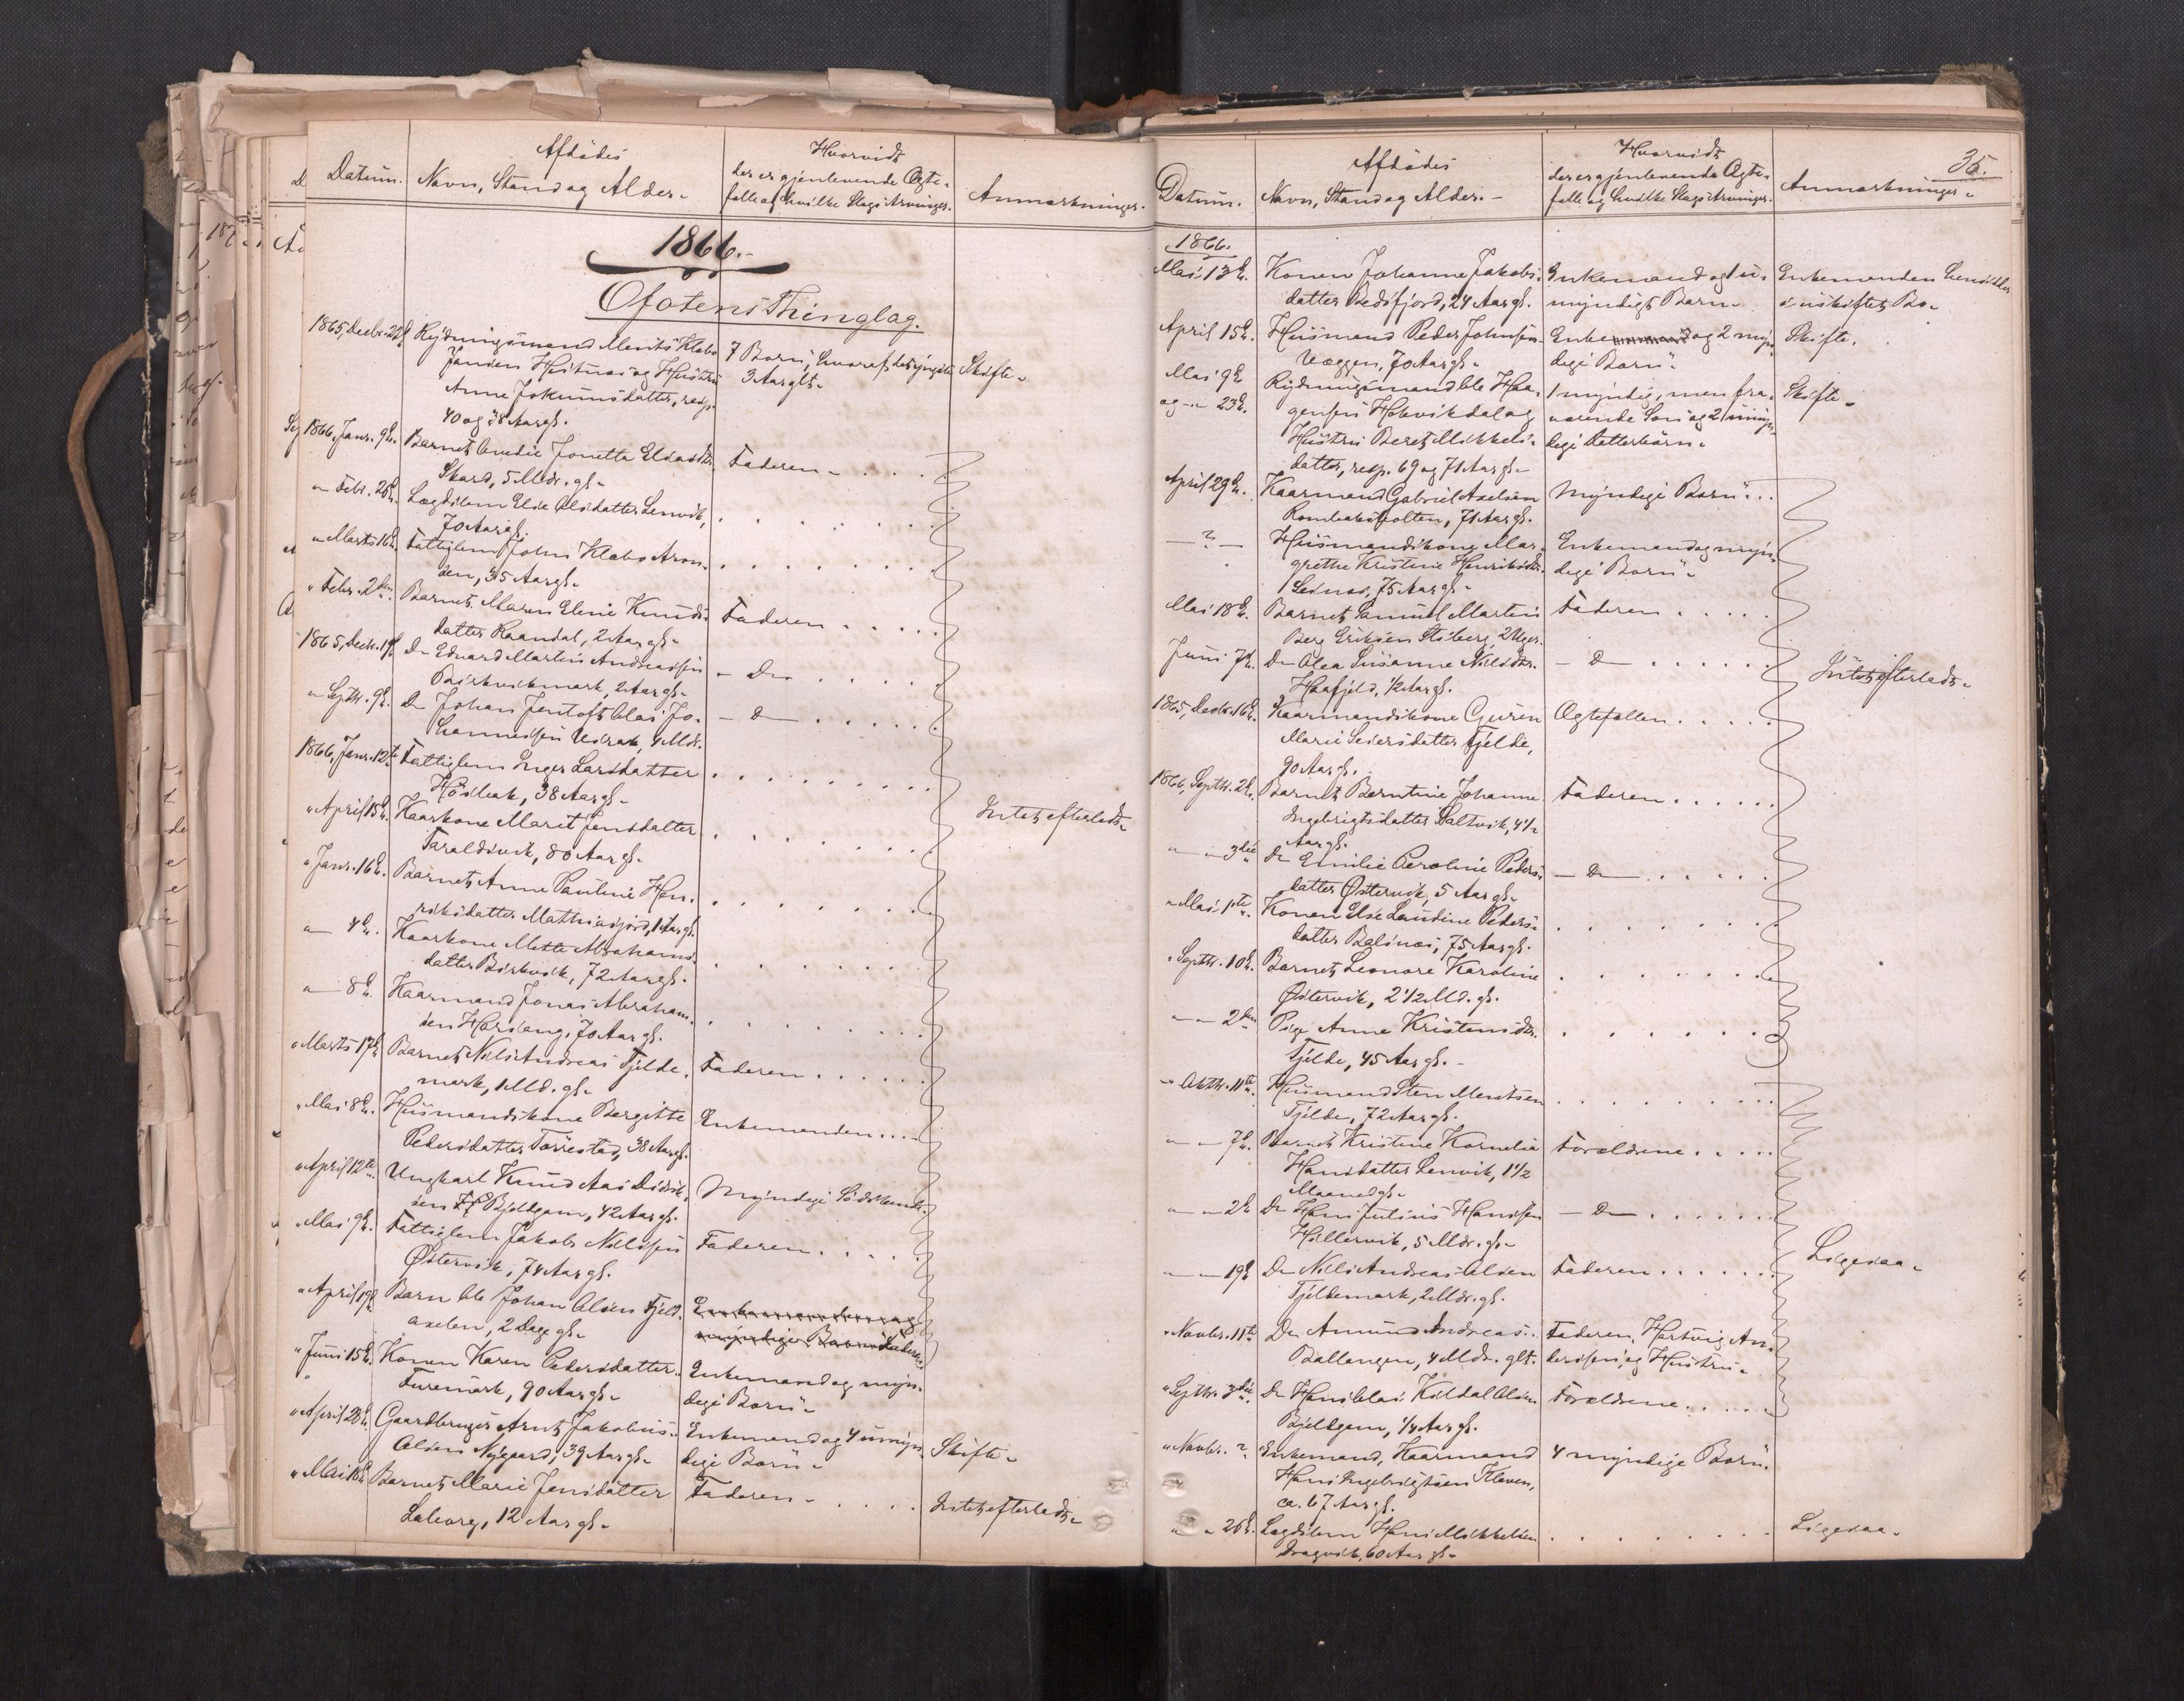 Datum.
Afdødes
Navn, Stand og Alder.
Hvorvidt
der er gjenlevende Ægte-
fælle og hvilke Slags Arvinger.
Anmærkninger.
1866.
Ofotens Thinglag.
1865, Decbr. 22d. Rydningsmand Ments Klabo
Jensen og Hustru
Anne Jokumsdatter, resp.
40 og 38 Aar gl.
7 Børn, hvoraf det yngste
3 Aar glt.
Skifte.
1866, Janr. 9d. Barnet Amdie Jonetta Eliasdtr.
Skard, 5 Mdr. gl.
Faderen
" Febr. 26d. Lægdslem Elie Olsdatter Lenvik,
70 Aar gl.
" Marts 16d. Fattiglem John Klabo Aron-
sen, 35 Aar gl.
" Febr. 2den Barnet Maren Elene Knuds-
datter Raandal, 2 Aar gl.
Faderen
1865, Decbr. 19d. Do Edvard Martin Andreassen
Birkvikmark, 2 Aar gl.
Do
" Septbr. 9d. Do Johan Jentoft Olai Jo-
hannessen 4 Mdr.
Do
1866, Janr. 12te Fattiglem Inger Larsdatter
38 Aar gl.
" April 15d. Kaarkone Marit Jensdatter
Taraldsvik, 80 Aar gl.
Intet efterladt.
" Janr. 16d. Barnet Anne Pauline Hen-
riksdatter Mathiasjord, 1 Aar gl.
" 4d. Kaarkone Mette Abrahams-
datter Birkvik, 72 Aar gl.
" 8d. Kaarmand Jonas Abraham-
sen Harsang, 70 Aar gl.
" Marts 17d. Barnet Nils Andreas Fjelde-
mark, 1 Md. gl.
Faderen
" Mai 8d. Husmandskone Bergitte
Pedersdatter Tørrestad, 38 Aar gl.
Enkemanden
" April 12te Ungkarl Knud Aas Didrik-
sen Bjeldgam, 42 Aar gl.
Myndige Sødskende
" Mai 9d. Fattiglem Jakob Nilssen
Østervik, 74 Aar gl.
Faderen
" April 19d. Barn Ole Johan Olsen Fjeld-
axelen, 2 Dage gl.
Enkemanden og
myndige Børn Faderen
" Juni 15d. Konen Karen Pedersdatter
Furemark, 90 Aar gl.
Enkemand og myn-
dige Børn
" April 28d. Gaardbruger Arnt Jakobus
Olsen Nygaard, 39 Aar gl.
Enkemand og 4 umyn-
dige Børn
Skifte
" Mai 18d. Barnet Marie Jensdatter
Leberg, 12 Aar gl.
Faderen
Intet efterladt
35.
Datum.
Afdødes
Navn, Stand og Alder.
Hvorvidt
der er gjenlevende Ægte-
fælle og hvilke Slags Arvinger.
Anmærkninger
1866.
Mai 13d. Konen Johanne Jakobs-
datter Bedsfjord, 24 Aar gl.
Enkemand og 1 u-
myndigt Barn
Enkemanden hensidder
i uskiftet Bo
April 15d. Husmand Peder Johnsen
Væggen, 70 Aar gl.
Enke og 2 myn-
dige Børn
Skifte.
Mai 9d.
og " 23d. Rydningsmand Ole Haa-
gensen Haavikdal og
Hustru Beret Mikkels-
datter, resp. 69 og 71 Aar gl.
1 myndig, men fra-
værende Søn og 2 myn-
dige Datterbørn
Skifte
April 29d. Kaarmand Gabriel Axelsen
Rombaksbotten, 71 Aar gl.
Myndige Børn
— ? — Husmandskone Mar-
grethe Kristine Henriksdtr.
Lednes, 75 Aar gl.
Enkemand og myn-
dige Børn
Mai 18d. Barnet Samuel Martin
Berg Eriksen Stiberg, 2 Uger.
Faderen
Juni 7d. Do Olea Susanne Nilsdtr.
Haafjeld, 1/2 Aar gl.
Do
Intet efterladt
1865, Decbr. 16d. Kaarmandskone Guren
Marie Seiersdatter Fjelde,
90 Aar gl.
Ægtefællen
1866, Septbr. 2d. Barnet Berntine Johanne
Ingebrigtsdatter Saltvik, 4 1/2
Aar gl.
Faderen
" " 3die Do Emilie Peroline Peders-
datter Østervik, 5 Aar gl.
Do
" Mai 1ste Konen Else Lundine Peders-
datter Balsnes, 75 Aar gl.
" Septbr. 10d. Barnet Leonore Karoline
Østervik, 2 1/2 Md. gl.
" " 2den Pige Anne Kristensdtr.
Fjelde, 45 Aar gl.
" Oktbr. 11te Husmand Sten Mentsen
Fjelde, 72 Aar gl.
" " 7d. Barnet Kristine Kornelia
Hansdatter Lenvik, 1 1/2
Maaned gl.
Forældrene
" " 2d. Do Hans Julius Hansen
Hellervik, 5 Mdr. gl.
Do
Ligesaa
" " 19d. Do Nils Andreas Olsen
Fjeldemark, 2 Mdr. gl.
Faderen
" Novbr. 11te Do Amund Andreas
Ballangen, 4 Mdr. glt.
Faderen, Hartvig An-
dersen og Hustru
" Septbr. 3die Do Hans Olai Kildal Olsen
Bjeldgam, 1/4 Aar gl.
Forældrene
" Novbr. ? Enkemand, Kaarmand
Hans Ingebrigtsen Kleven,
ca. 67 Aar gl.
4 myndige Børn.
" " 26d. Lægdslem Hans Mikkelsen
Dragvik, 60 Aar gl.
Ligesaa